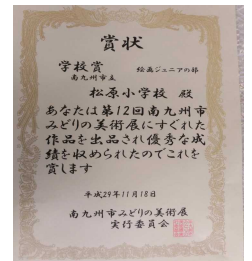 賞状
学校賞 絵画ジュニアの部
南九州市立
松原小学校 殿
あなたは第12回南九州市
みどりの美術展にすぐれた
作品を出品され優秀な成
績を収められたのでこれを
賞します
平成29年11月18日
南九州市みどりの美術展
実行委員会